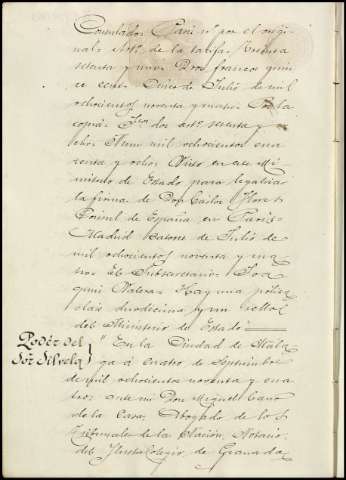 Consulado Paris nº por el origi-
nal Artº de la tarifa treinta
setenta y uno Dros francos quin
ce cents Once de Julio de mil
ochocientos noventa y cuatro Por la
copia dos artº setenta y
ocho Núm mil ochocientos cua
renta y ocho Visto en este Mi-
nisterio de Estado para legalizar
la firma de Don Carlos Flores
Consul de España en Paris
Madrid catorce de Julio de
mil ochocientos noventa y cua
tro El Subsecretario Joa
quin Valera Hay una póliza
clase duodecima y un sello
del Ministerio de Estado
Poder del
Sór Silvela
" En la Ciudad de Mala
ga á cuatro de Septiembre
de mil ochocientos noventa y cua
tro ante mi Don Miguel Cano
de la Casa, Abogado de los
Tribunales de la Nación, Notario
del Ilustre Colegio de Granada